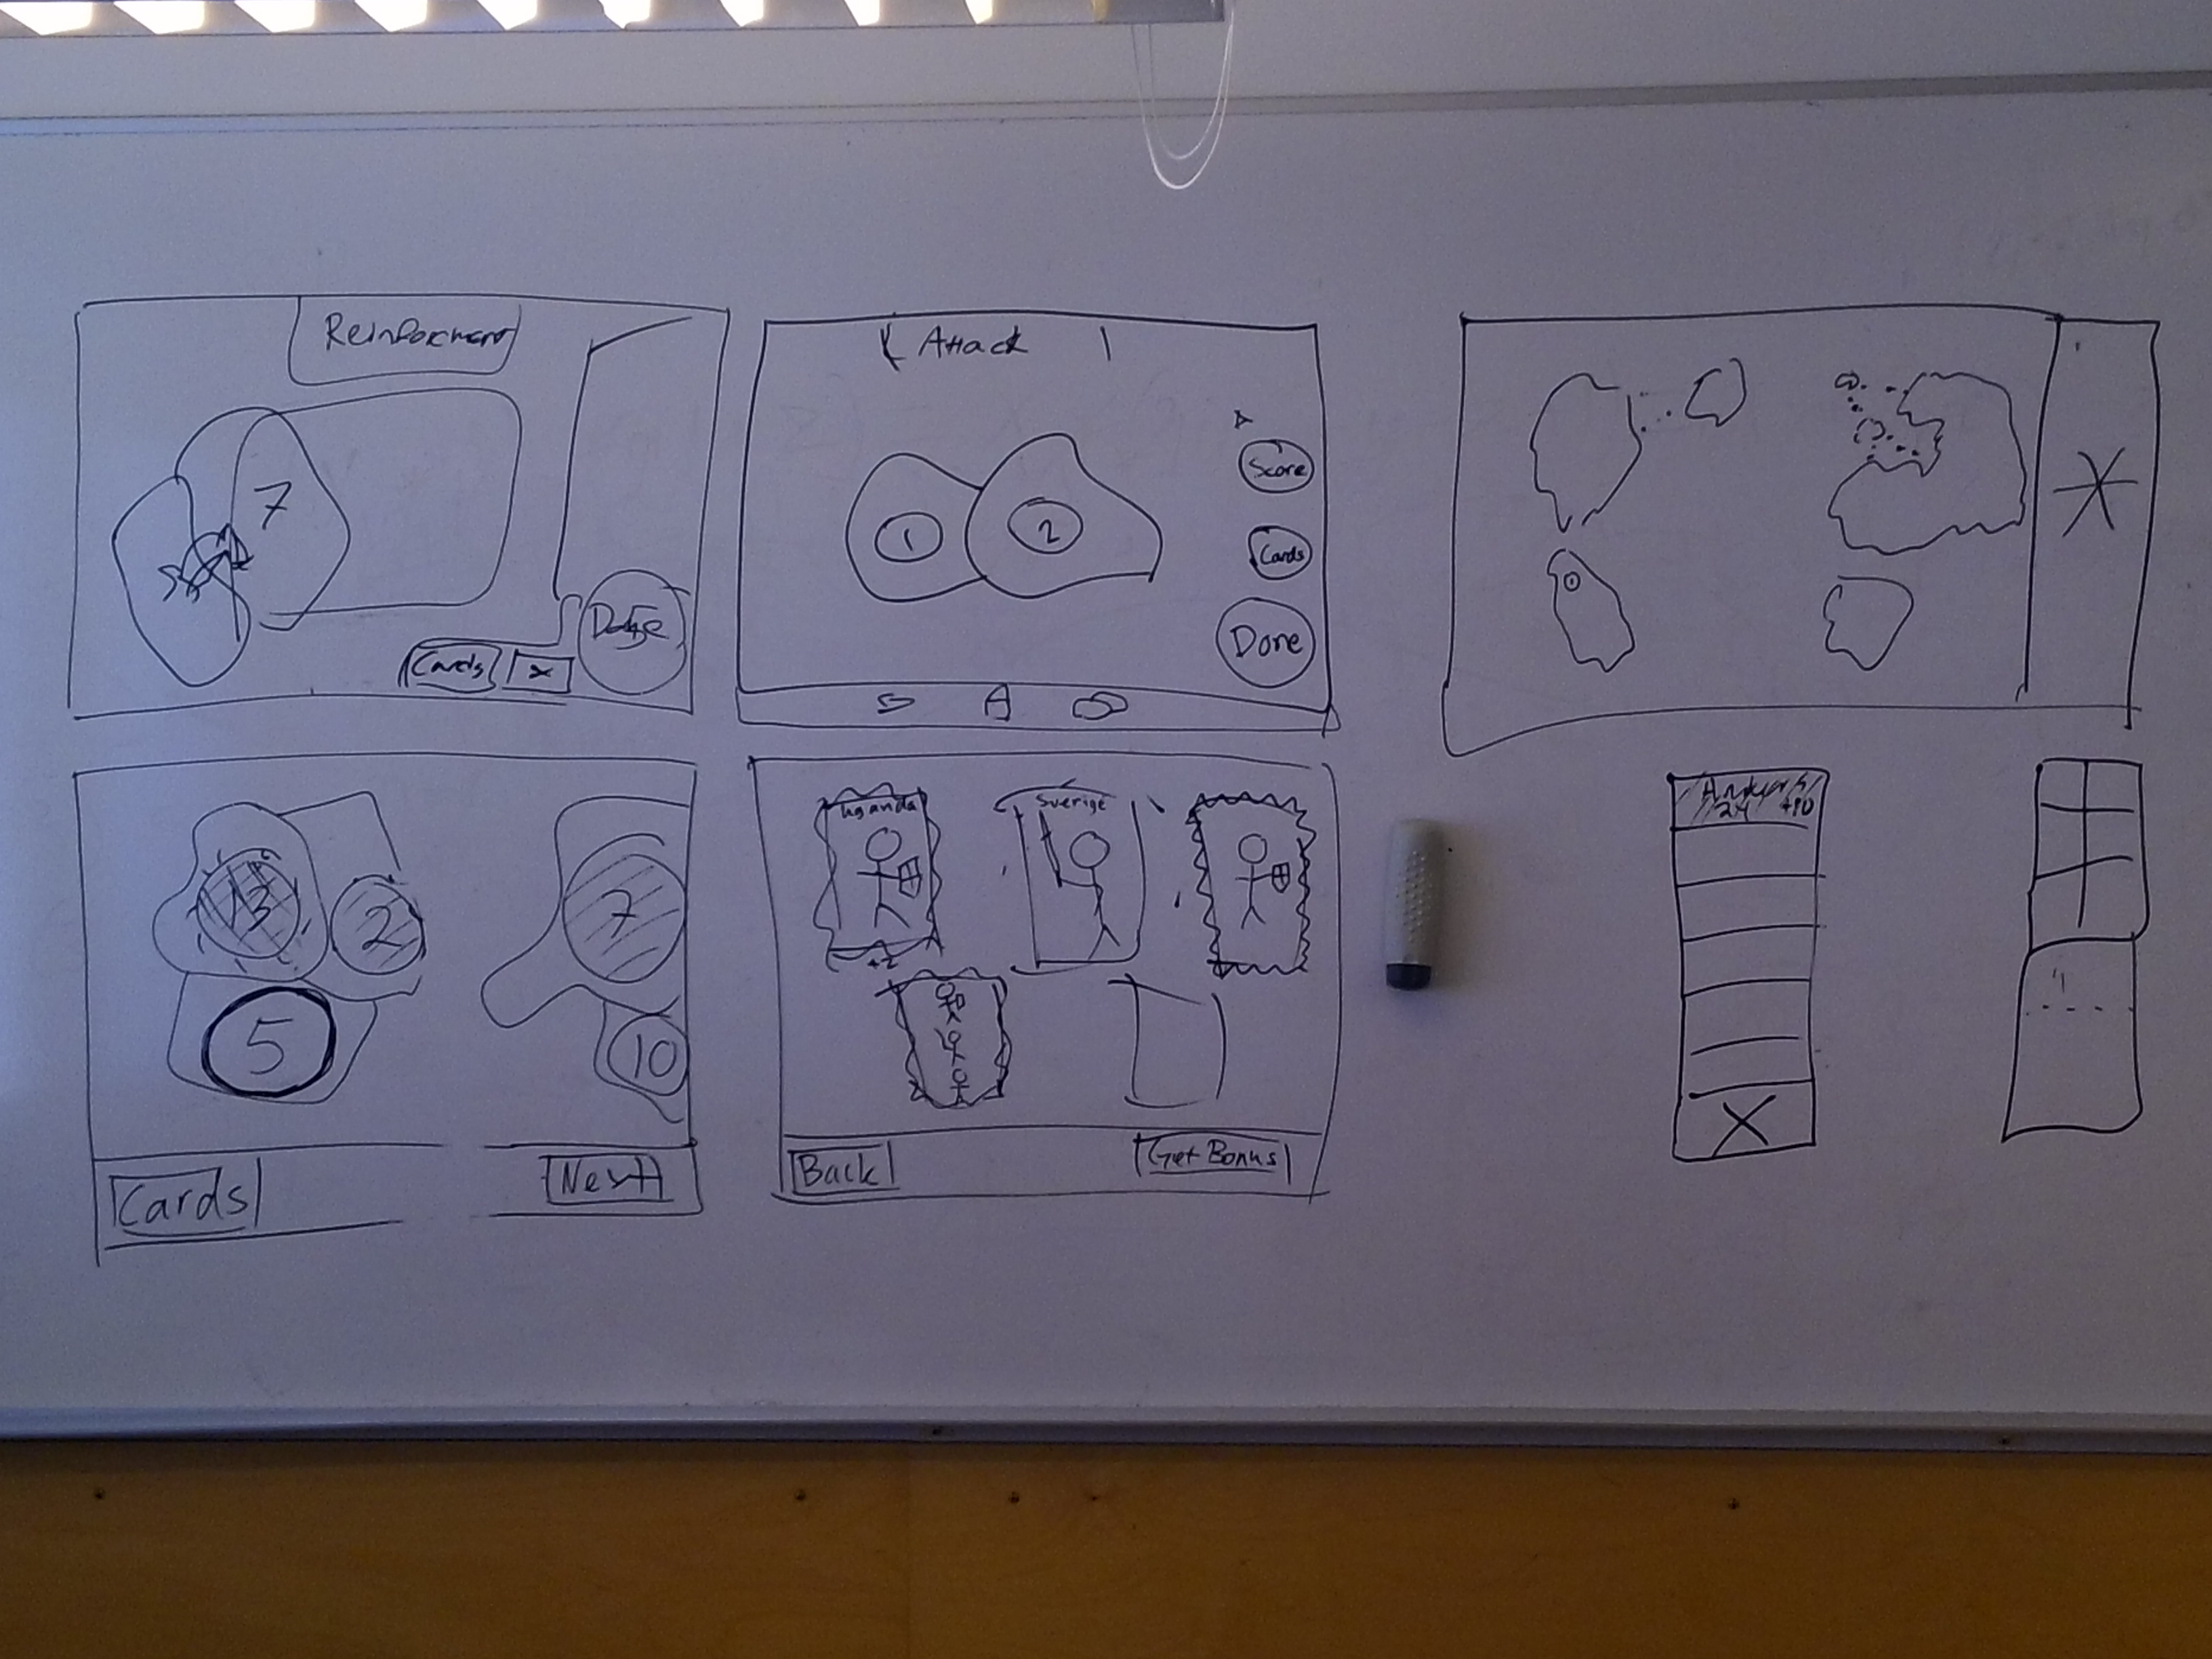 Reinforcment
7
Cards
Attack
1
2
Score
Cards
Done
1
13
2
5
7
10
Cards
Next
Uganda
+2
Sverige
Back
Get Bonus
24 +10
X